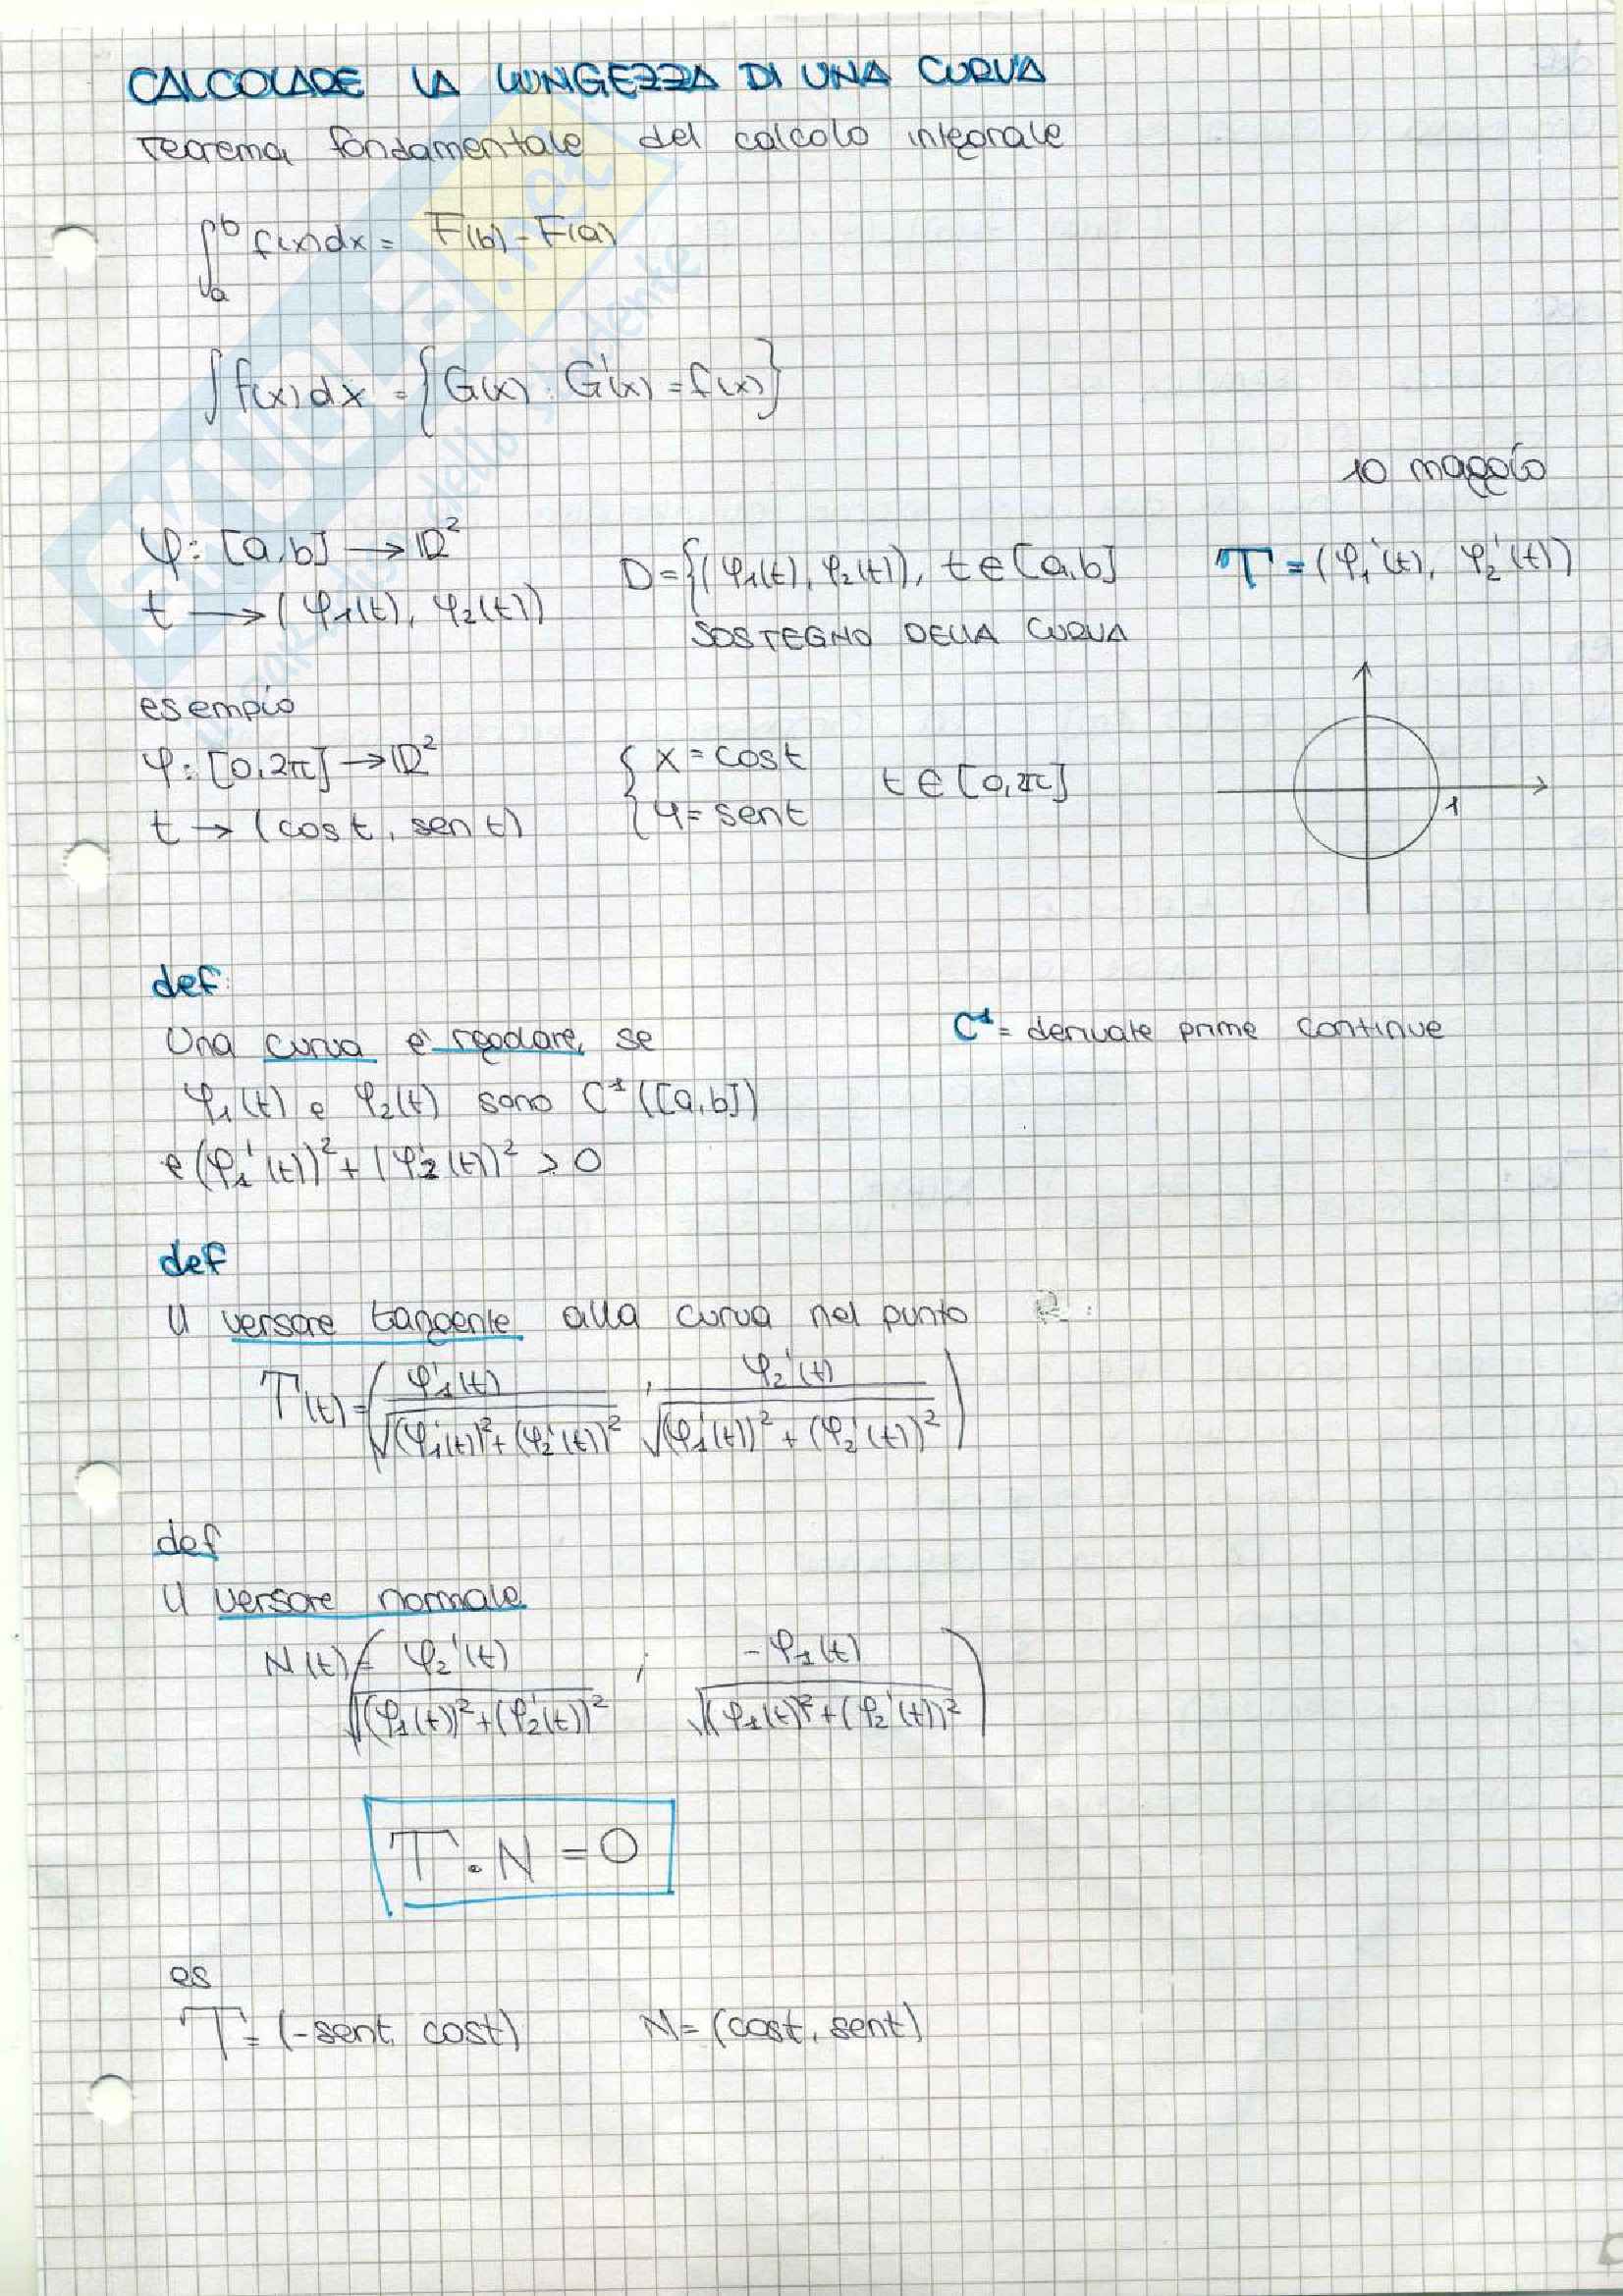 CALCOLARE LA LUNGEZZA DI UNA CURVA
Teorema fondamentale del calcolo integrale
∫ₐᵇ f(x)dx = F(b) - F(a)
∫ f(x) dx = {G(x) : G'(x) = f(x)}
10 maggio
φ: [a,b] → ℝ²
t → (φ₁(t), φ₂(t))
D = {(φ₁(t), φ₂(t)), t ∈ [a,b]
SOSTEGNO DELLA CURVA
T = (φ₁'(t), φ₂'(t))
esempio
φ: [0,2π] → ℝ²
t → (cost, sent)
{ x = cost
{ y = sent
t ∈ [0,2π]
1
def:
Una curva e' regolare, se
φ₁(t) e φ₂(t) sono C¹([a,b])
e (φ₁'(t))² + (φ₂'(t))² > 0
C¹ = derivate prime continue
def
Il versore tangente alla curva nel punto
T(t) = (φ₁'(t) / √(φ₁'(t))² + (φ₂'(t))² , φ₂'(t) / √(φ₁'(t))² + (φ₂'(t))²)
def
Il versore normale
N(t) = (φ₂'(t) / √(φ₁(t))² + (φ₂'(t))² ; -φ₁(t) / √(φ₁(t))² + (φ₂'(t))²)
T • N = 0
es
T = (-sent, cost) N = (cost, sent)
SKUOLA.net